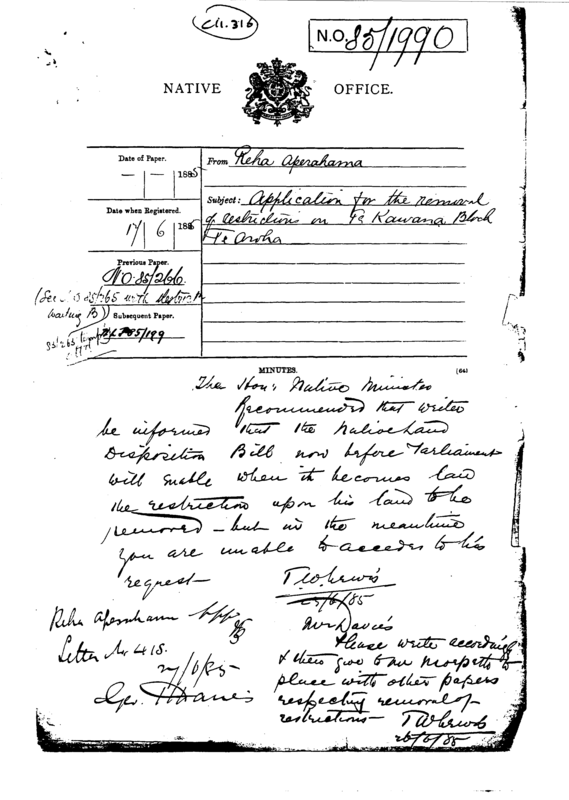 Ch. 316
N.O. 85/1990
NATIVE OFFICE.
Date of Paper.
— | — | 1885
From Reha Aperahama
Subject: Application for the removal
of restrictions on Te Kawana Block
Te Aroha
Date when Registered.
17 | 6 | 188
Previous Paper.
NO. 85/266.
(See 85/265 with
waiting B)
Subsequent Paper.
85/199
85/265
MINUTES.
(64)
The Hon: Native Minister
Recommended that writer
be informed that the Native Land
Disposition Bill now before Parliament
will enable when it becomes law
the restriction upon his land to be
removed — but in the meantime
you are unable to accede to his
request —
T W Lewis
/6/85
Mr Davies
Please write accordingly
& then give to Mr Morpeth to
place with other papers
respecting removal of
restrictions — T W Lewis
26/6/85
Reha Aperahama
Letter No 418.
27/6/85
Geo. T Davies